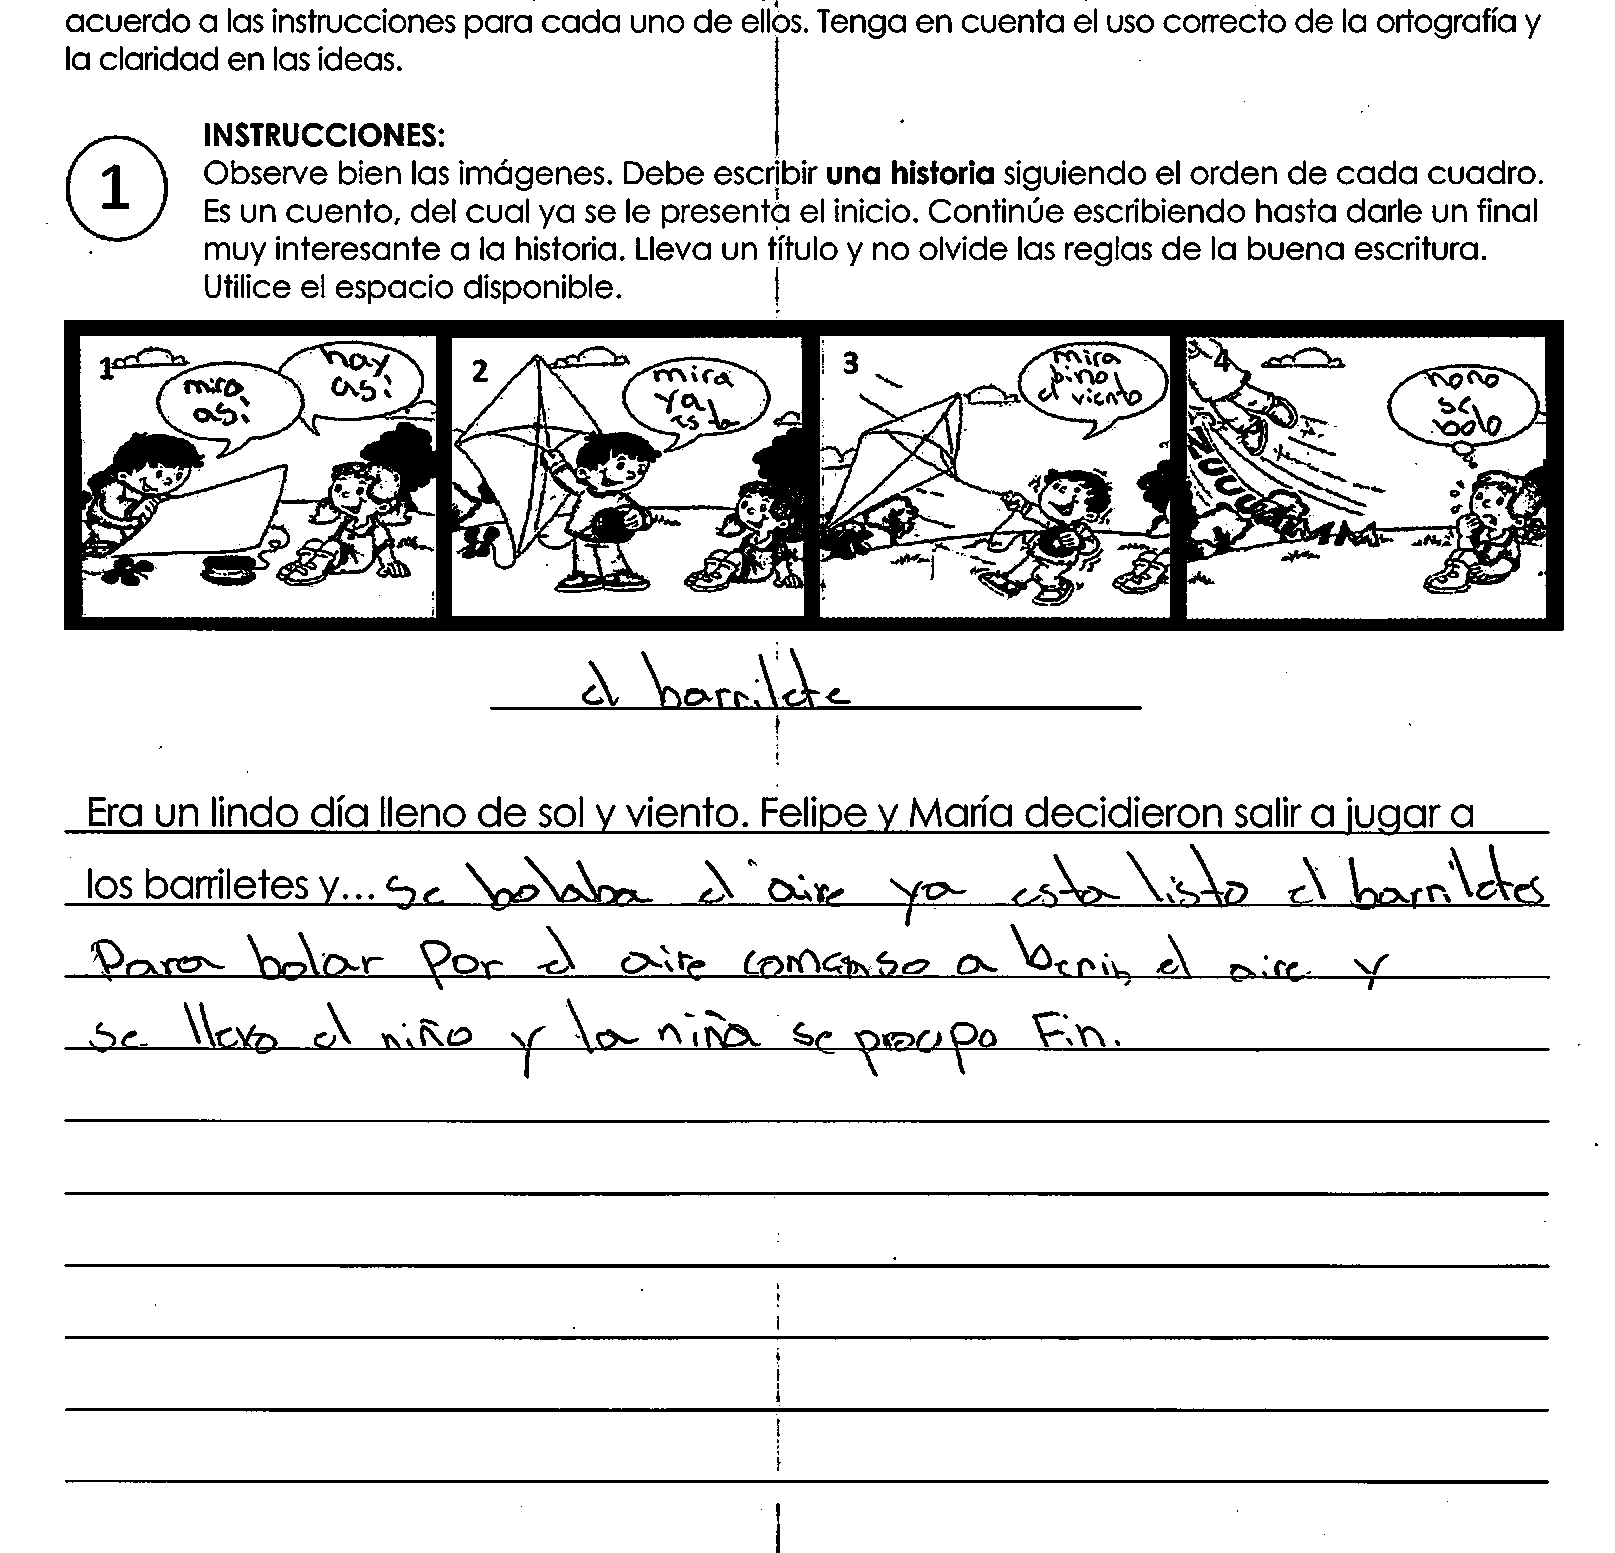 acuerdo a las instrucciones para cada uno de ellos. Tenga en cuenta el uso correcto de la ortografía y
la claridad en las ideas.
1
INSTRUCCIONES:
Observe bien las imágenes. Debe escribir una historia siguiendo el orden de cada cuadro.
Es un cuento, del cual ya se le presenta el inicio. Continúe escribiendo hasta darle un final
muy interesante a la historia. Lleva un título y no olvide las reglas de la buena escritura.
Utilice el espacio disponible.
1
mira
asi
hay
asi
2
mira
ya
esta
3
mira
bino
el viento
4
nono
se
bolo
ZUUUUMMM
el barrilete
Era un lindo día lleno de sol y viento. Felipe y María decidieron salir a jugar a
los barriletes y... se bolaba el aire ya esta listo el barriletes
Para bolar por el aire comenso a benir el aire y
se llevo el niño y la niña se procupo Fin.